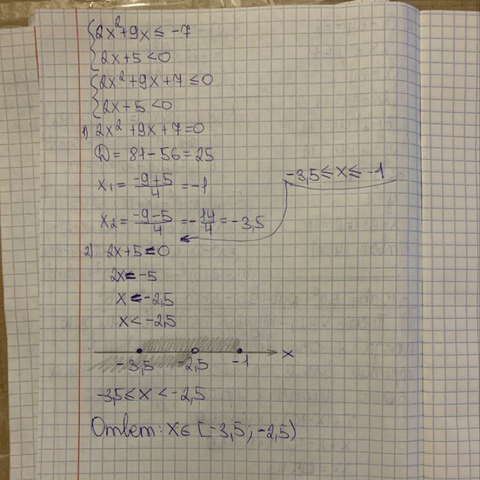 {2x²+9x ≤ -7
{2x+5 <0
{2x²+9x+7 ≤0
{2x+5 <0
1) 2x²+9x+7=0
D= 81-56=25
x₁= (-9+5)/4 = -1
-3,5 ≤ x ≤ -1
x₂= (-9-5)/4 = -14/4 = -3,5
2) 2x+5=0
2x=-5
x=-2,5
x<-2,5
-3,5 -2,5 -1 x
-3,5≤x<-2,5
Ответ: x∈ [-3,5; -2,5)